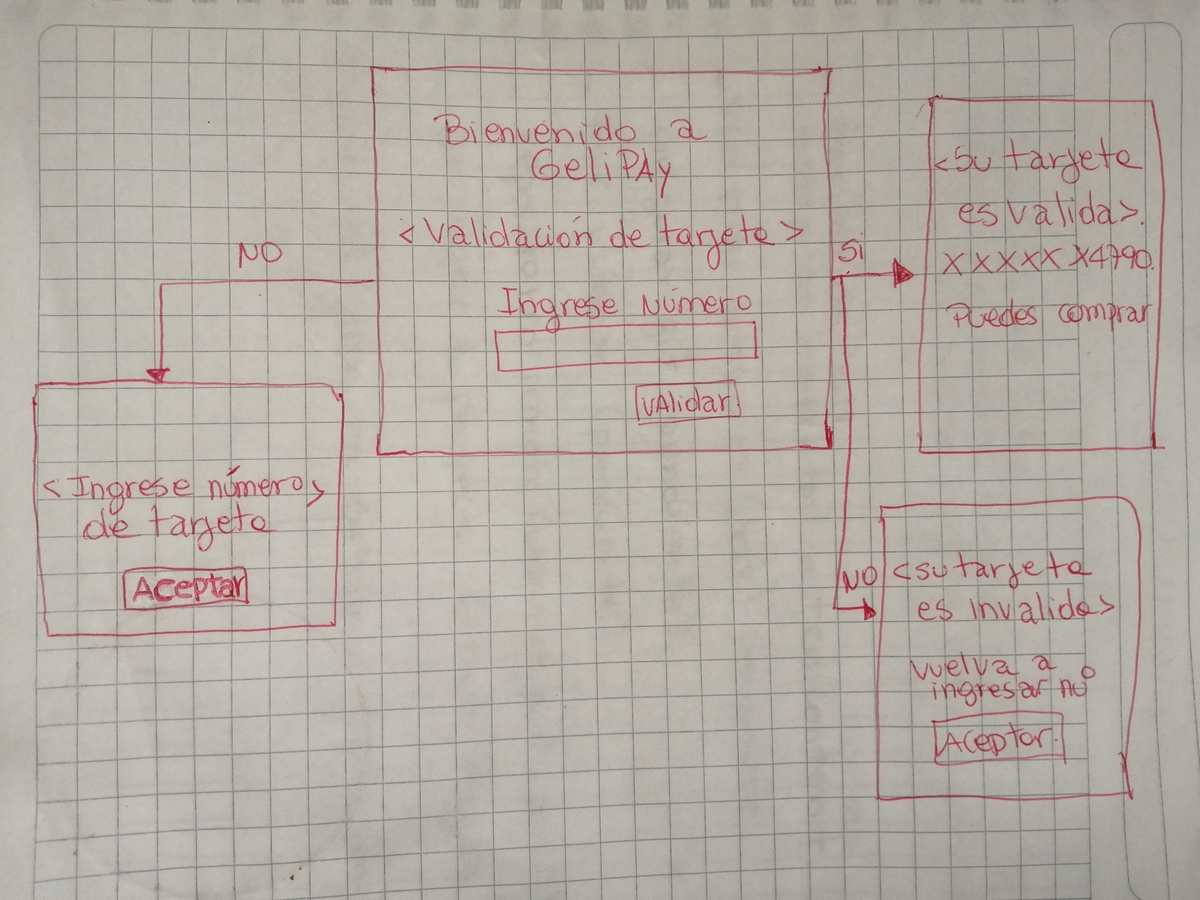 Bienvenido a
GeliPAy
<Validación de targeta>
Ingrese Número
VAlidar
NO
<Ingrese número>
de targeta
ACeptar
Si
<Su targeta
es valida>.
XXXXX X4790.
Puedes comprar
NO
<su targeta
es invalida>
vuelva a
ingresar nº
ACeptar.